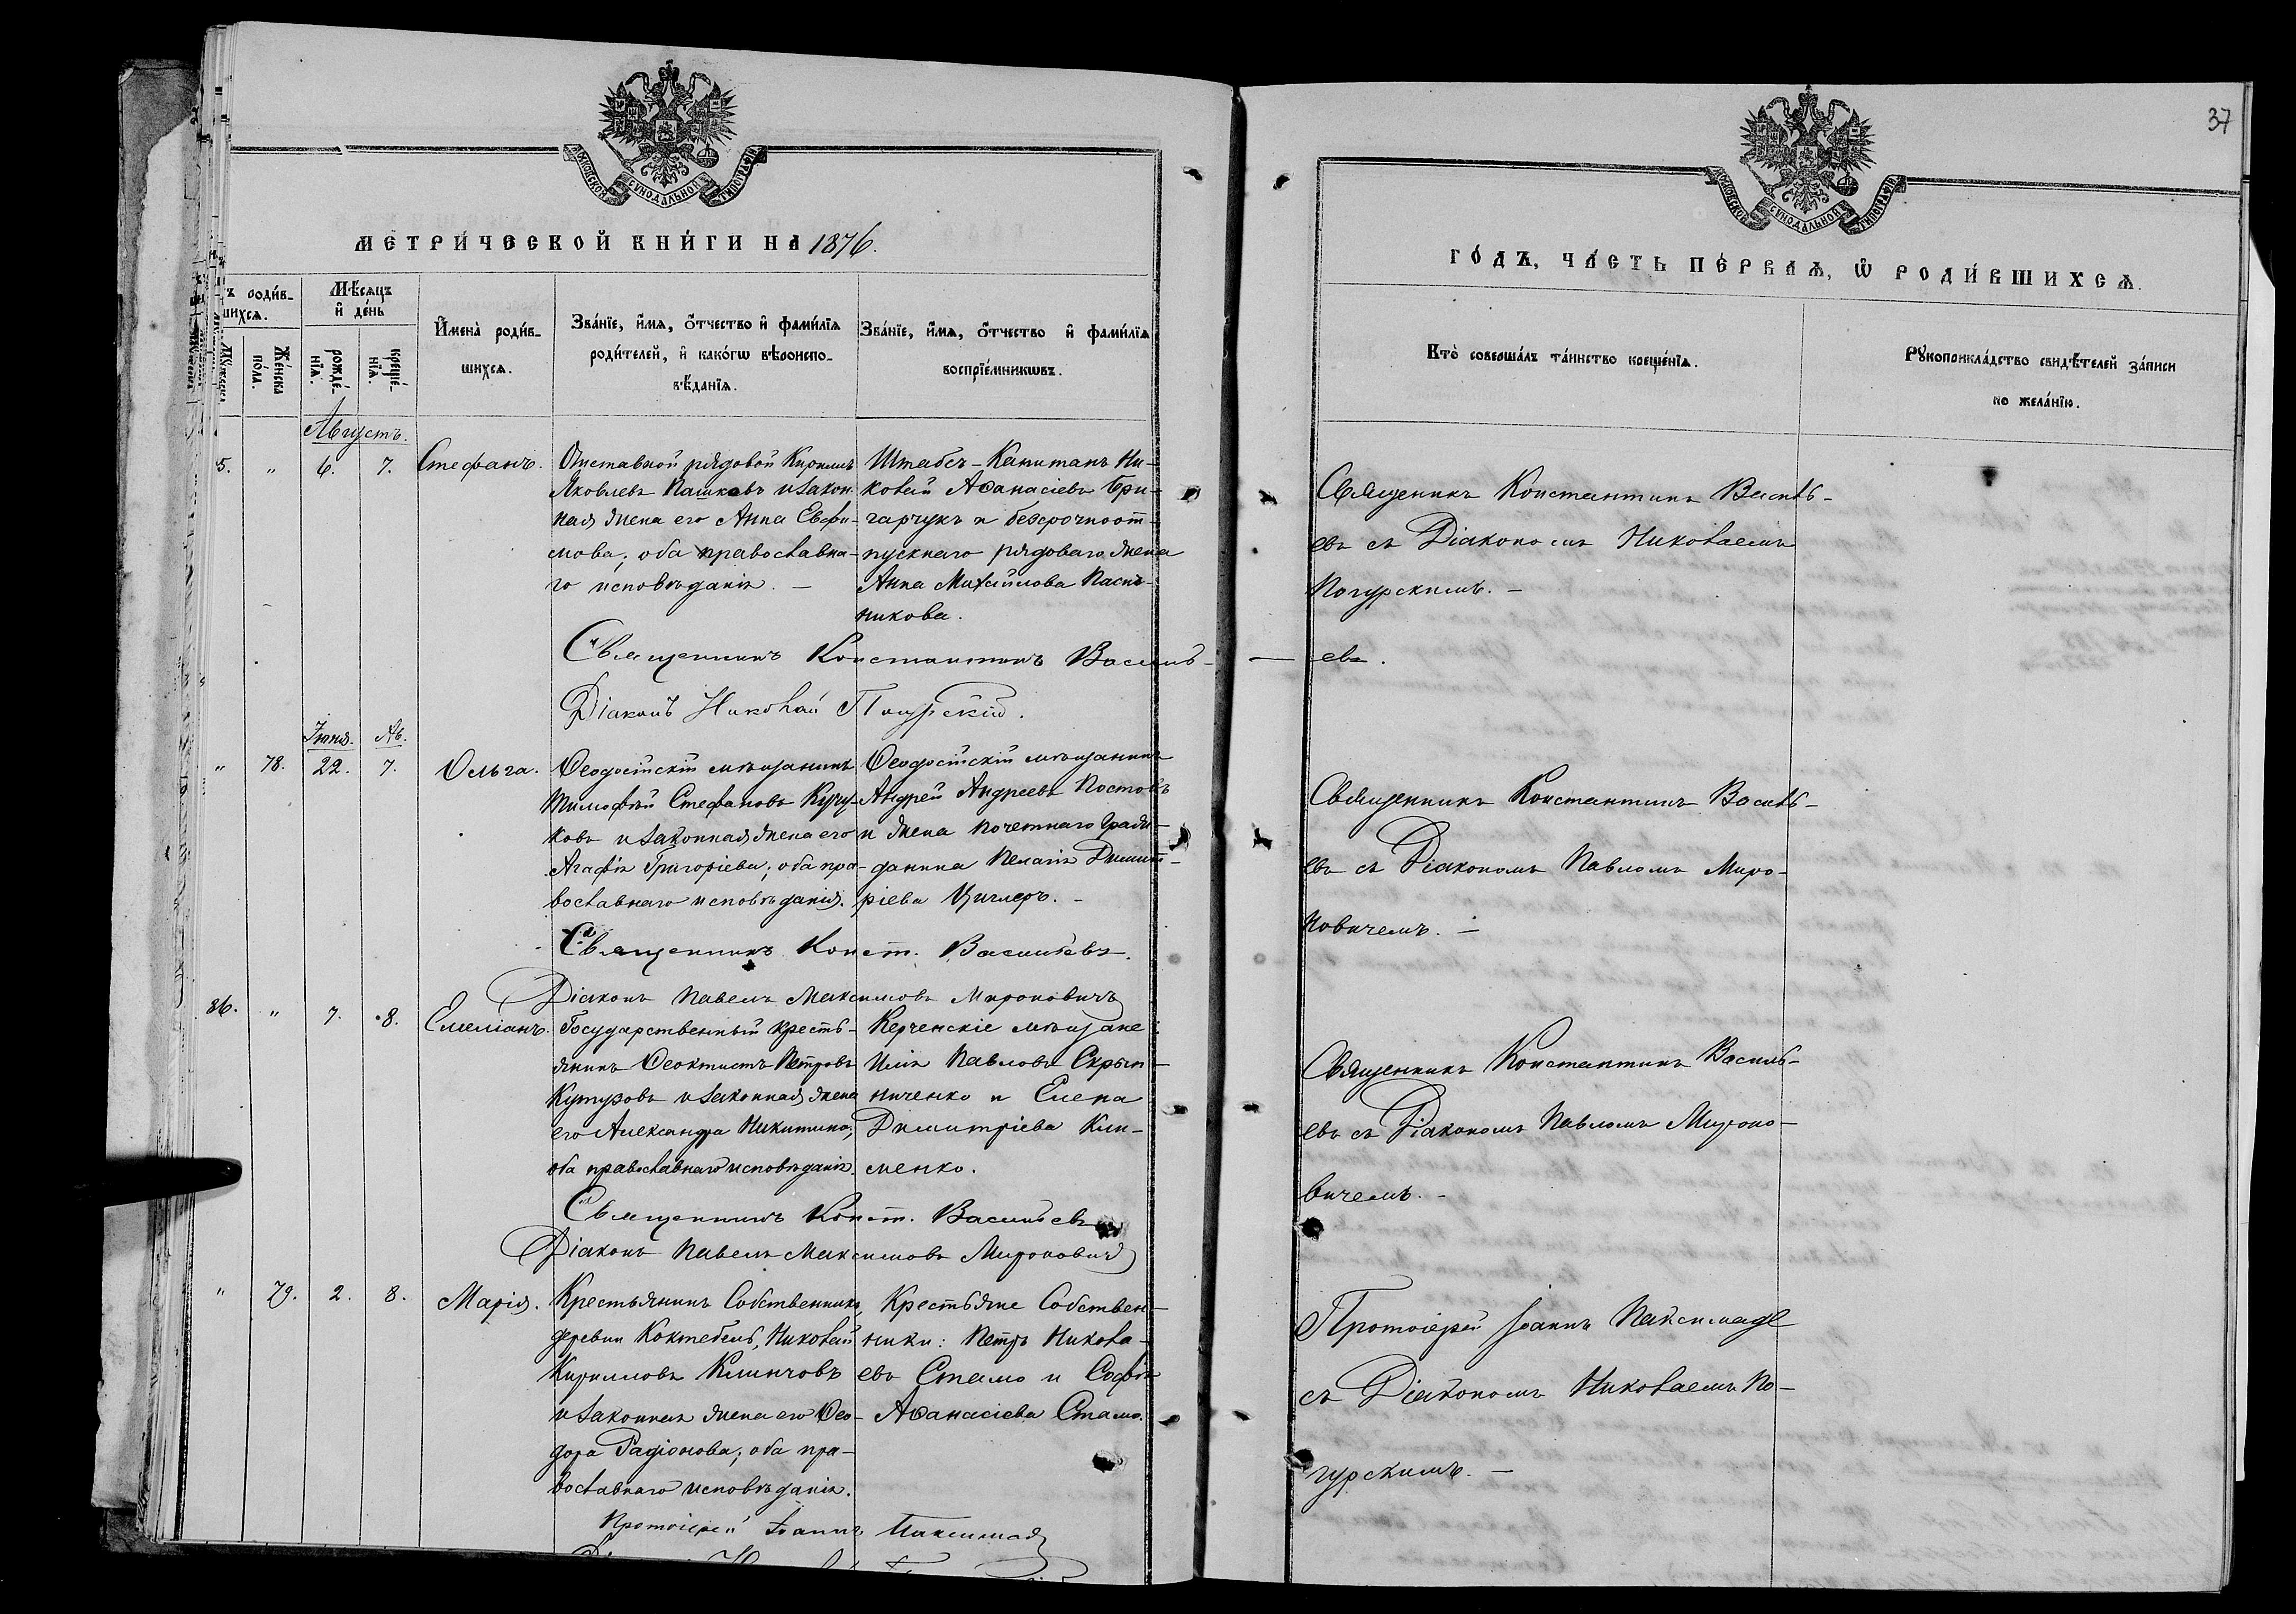 37
МОСКОВСКОЙ СУНОДАЛЬНОЙ ТИПОГРАФІИ
МОСКОВСКОЙ СУНОДАЛЬНОЙ ТИПОГРАФІИ
МЕТРИ́ЧЕСКОЙ КНИ́ГИ НА 1876.
ГО́ДЪ, ЧА́СТЬ ПЕ́РВАѦ, Ѡ҆ РОДИ́ВШИХСѦ.
ъ роди́в-
шихсѧ.
Мѣсѧцъ
и҆ де́нь
Му́жеска
Же́нска
по́ла.
рожде́-
нїѧ.
креще́-
нїѧ.
И҆мена̀ роди́в-
шихсѧ.
Зва́нїе, и҆́мѧ, ѻ҆́тчество и҆ фами́лїѧ
роди́телей, и҆ како́гѡ вѣроиспо-
вѣ́данїѧ.
Зва́нїе, и҆́мѧ, ѻ҆́тчество и҆ фами́лїѧ
воспрїе́мникѡвъ.
Кто̀ соверша́лъ та́инство креще́нїѧ.
Рꙋкоприкла́дство свидѣ́телей за́писи
по жела́нїю.
Августъ.
5. " 6. 7. Стефанъ.
Отставной рядовой Кириллъ
Яковлевъ Пашковъ и закон-
ная жена его Анна Евфи-
мова; оба православна-
го исповѣданія. —
Штабсъ-Капитанъ Ни-
колай Аѳанасіевъ Бри-
гарчукъ и безсрочноот-
пускнаго рядоваго жена
Анна Михайлова Пасѣ-
никова.
Священникъ Константинъ Василь-
евъ съ Діакономъ Николаемъ
Погурскимъ. —
Священникъ Константинъ Василь- — евъ.
Діаконъ Николай Погурскій.
Іюня. Ав.
" 78. 22. 7. Ольга.
Ѳеодосійскій мѣщанинъ
Тимофѣй Стефановъ Кучу-
ковъ и законная жена его
Агафія Григоріева; оба пра-
вославнаго исповѣданія.
Ѳеодосійскій мѣщанинъ
Андрей Андреевъ Постовъ
и жена почетнаго граж-
данина Пелагія Димит-
ріева Циглеръ. —
Священникъ Константинъ Василь-
евъ съ Діакономъ Павломъ Миро-
новичемъ. —
Священникъ Конст. Васильевъ.
Діаконъ Павелъ Максимовъ Мироновичъ
86. " 7. 8. Емеліанъ.
Государственный кресть-
янинъ Ѳеоктистъ Петровъ
Кутузовъ и законная жена
его Александра Никитина;
оба православнаго исповѣданія.
Керченскіе мѣщане:
Илія Павловъ Скрып-
ниченко и Елена
Димитріева Кли-
менко.
Священникъ Константинъ Василь-
евъ съ Діакономъ Павломъ Мироно-
вичемъ. —
Священникъ Конст. Васильевъ
Діаконъ Павелъ Максимовъ Мироновичъ
" 79. 2. 8. Марія.
Крестьянинъ Собственникъ,
деревни Коктебель, Николай
Кирилловъ Клинчовъ
и законная жена его Ѳео-
дора Радіонова; оба пра-
вославнаго исповѣданія.
Крестьяне Собствен-
ники: Петръ Никола-
евъ Стамо и Софія
Аѳанасіева Стамо.
Протоіерей Іоаннъ Паксимаде
съ Діакономъ Николаемъ По-
гурскимъ. —
Протоіерей Іоаннъ Паксимадѣ